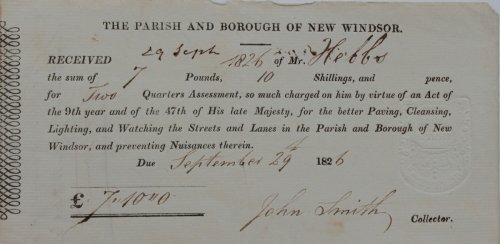 THE PARISH AND BOROUGH OF NEW WINDSOR.
RECEIVED 29 Sept 1826 of Mr. Hebbs
the sum of 7 Pounds, 10 Shillings, and pence,
for Two Quarters Assessment, so much charged on him by virtue of an Act of
the 9th year and of the 47th of His late Majesty, for the better Paving, Cleansing,
Lighting, and Watching the Streets and Lanes in the Parish and Borough of New
Windsor, and preventing Nuisances therein.
Due September 29 1826
£ 7.10.0
John Smith Collector.